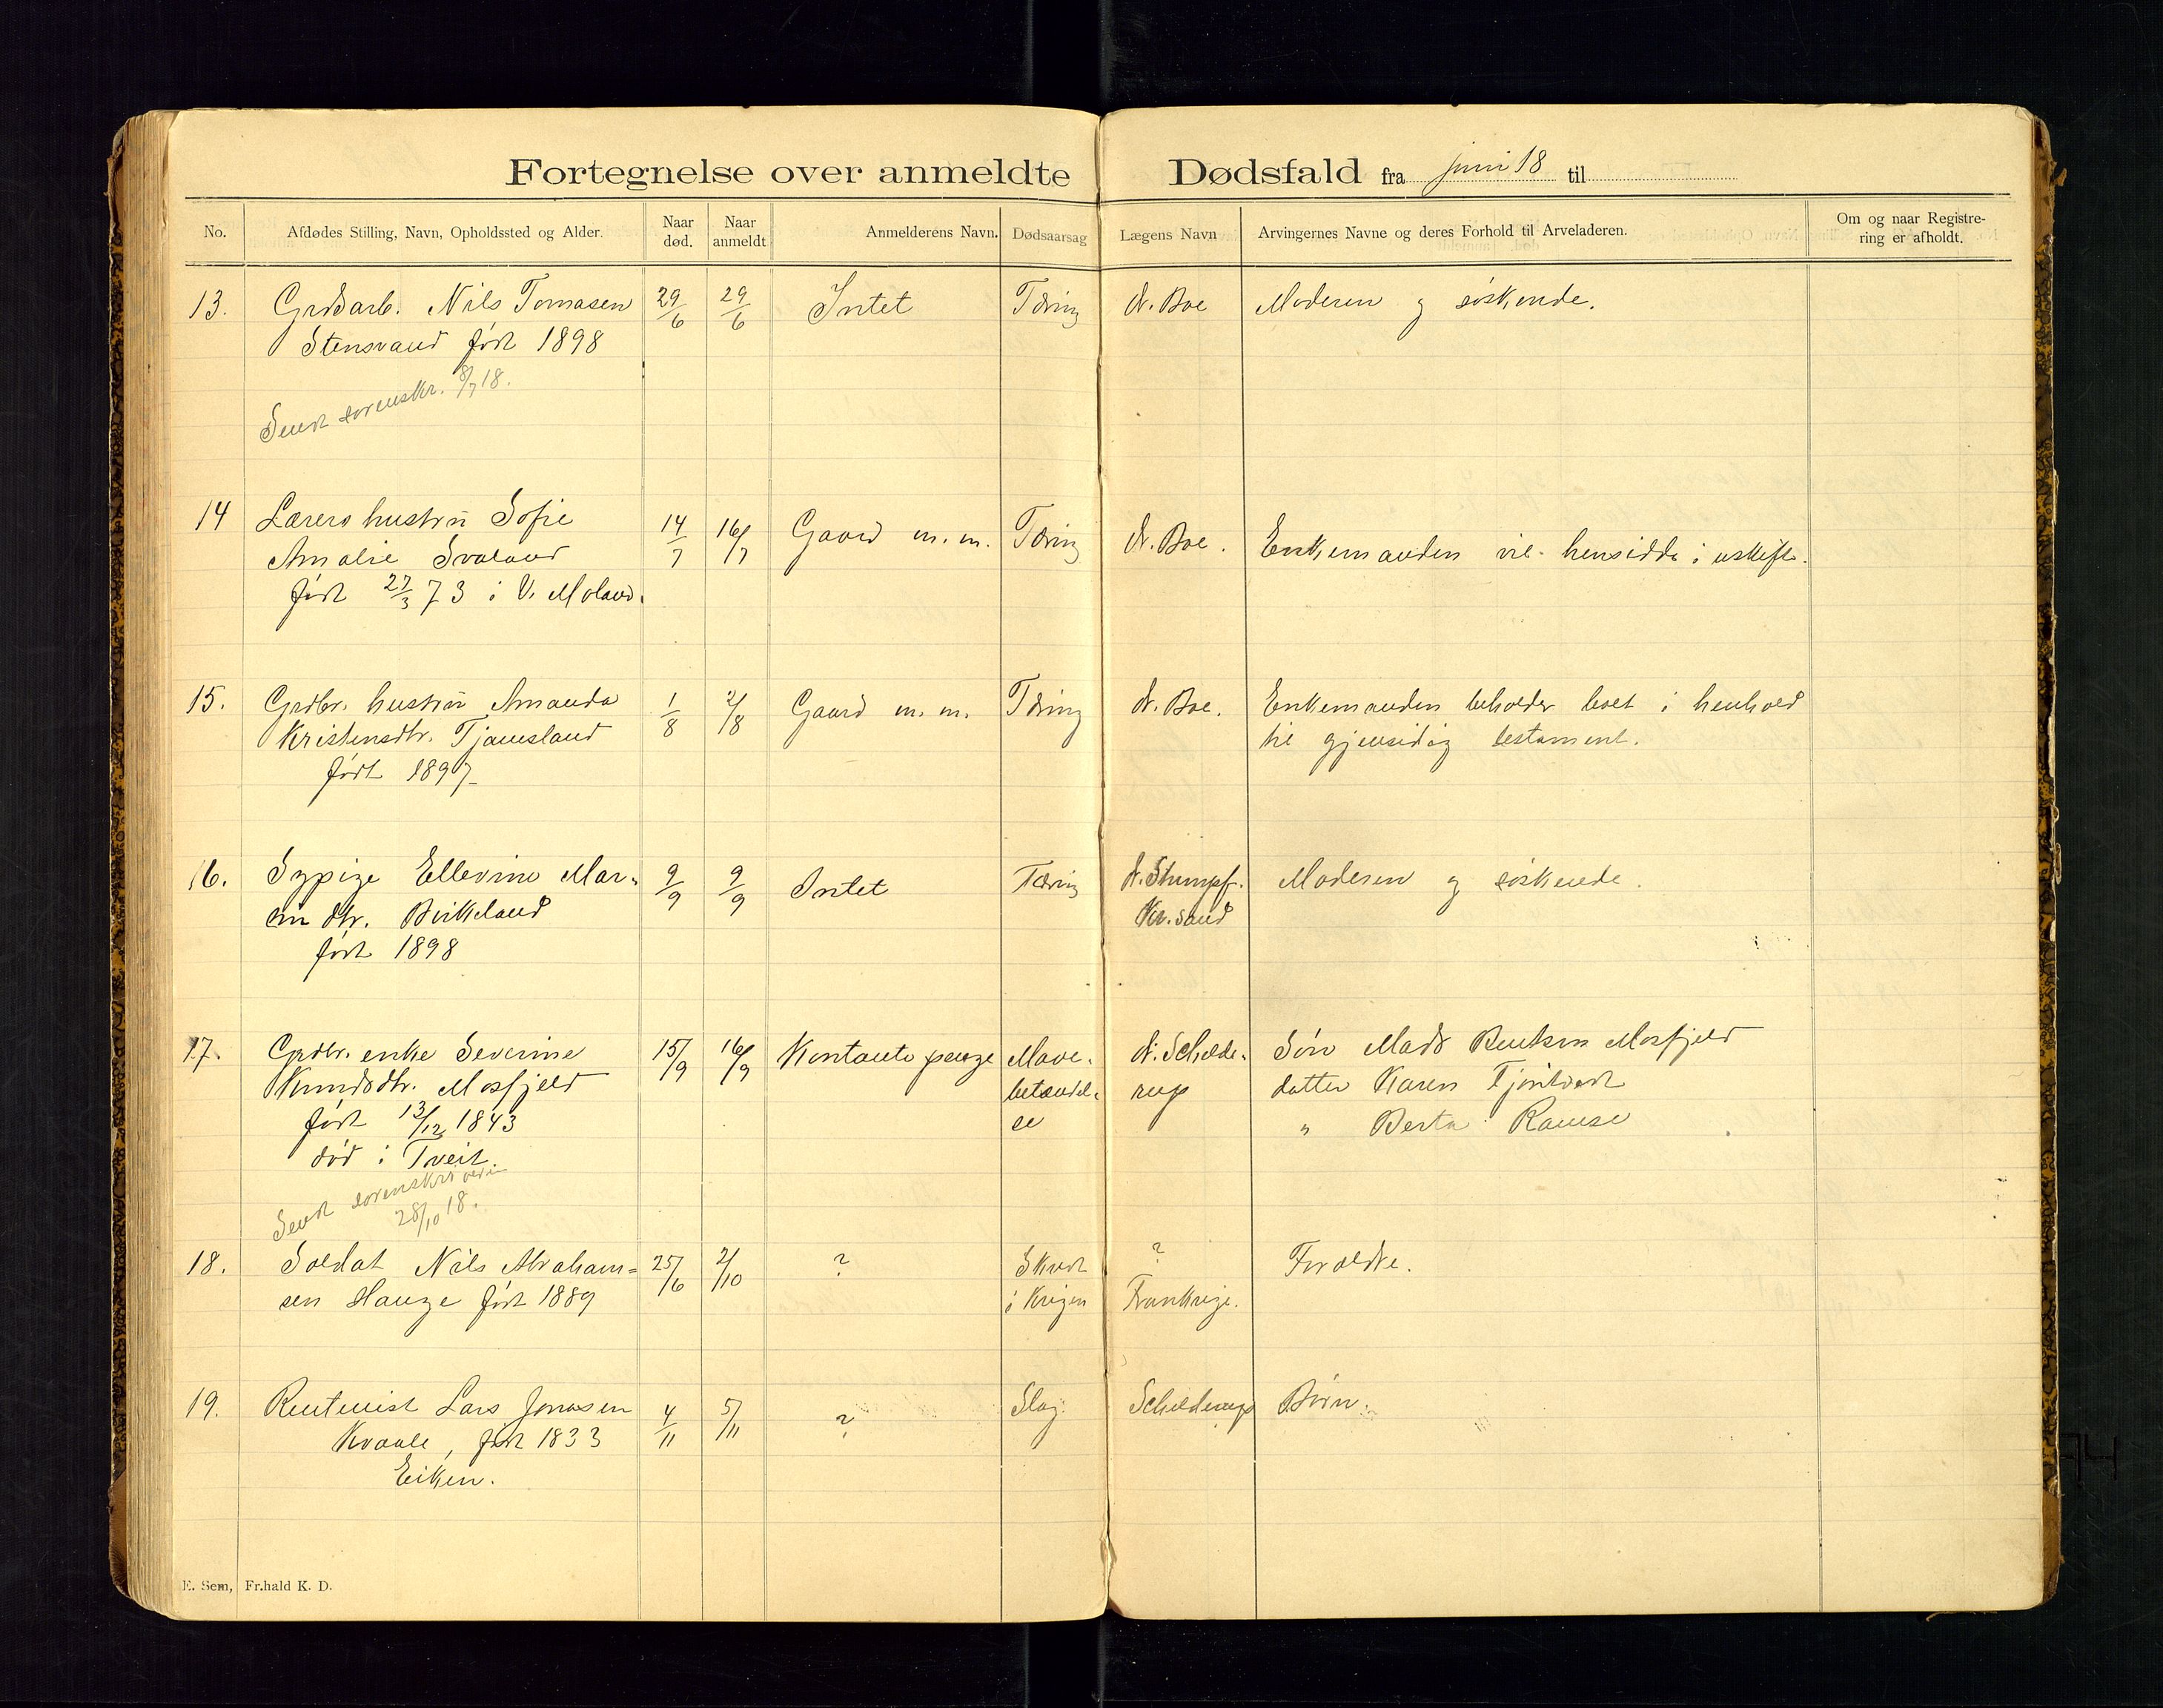 Fortegnelse over anmeldte Dødsfald fra juni 18 til
No.
Afdødes Stilling, Navn, Opholdssted og Alder.
Naar død.
Naar anmeldt
Anmelderens Navn.
Dødsaarsag
Lægens Navn
Arvingernes Navne og deres Forhold til Arveladeren.
Om og naar Registre-
ring er afholdt.
13. Grdsarb. Nils Tomasen 29/6 29/6 Intet Tæring dr. Boe Moderen og søskende.
Stensvand født 1898
Sendt sorenskr. 8/7 18.
14 Lærers hustru Sofie
Amalie Svaland 14/7 16/7 Gaard m. m. Tæring dr. Boe. Enkemanden vil hensidde i uskifte.
født 27/3 73 i V. Moland.
15. Grdbr. hustru Amanda 1/8 2/8 Gaard m. m. Tæring dr. Boe. Enkemanden beholder boet i henhold
Kristensdtr. Tjamsland til gjensidig testament.
født 1897
16. Sypige Ellevine Mar- 9/9 9/9 Intet Tæring dr. Stumpf. Moderen og søskende.
en dtr. Birkeland Kr.sand
født 1898
17. Grdbr. enke Severine 15/9 16/9 Kontante penge Mave- dr. Schelde- Søn Mads Bentsen Mosfjeld
Knudsdtr. Mosfjeld betændel- rup datter Karen
født 13/12 1843 se " Berta Ramse
død i Tveit.
Sendt sorenskriveren
28/10 18.
18. Soldat Nils Abraham- 25/6 2/10 ? Skudt ? Foreldre.
sen Hauge født 1889 i Krigen Frankrige.
19. Rentenist Lars Jonasen 4/11 5/11 ? Slag. Schelderup Børn.
Kvaale, født 1833
Eiken.
E. Sem, Fr.hald K. D.
74